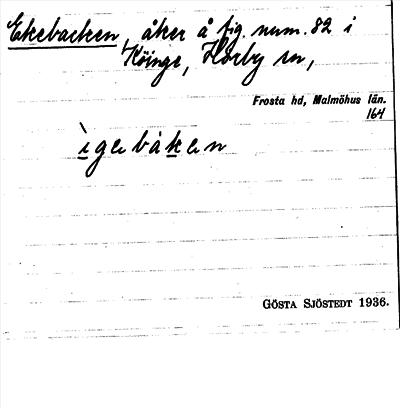 Ekebacken, åker å fig. num. 82 i
Köinge, Hörby sn,
Frosta hd, Malmöhus län.
164
ìgebàken
GÖSTA SJÖSTEDT 1936.